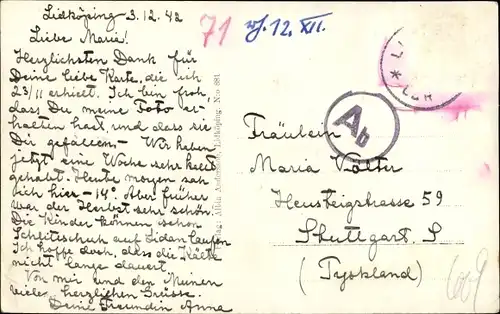 Lidköping 3.12.42
Liebe Marie!
Herzlichsten Dank für
Deine liebe Karte, die ich
23/11 erhielt. Ich bin froh,
dass Du meine Foto er-
halten hast, und dass sie
Dir gefallen – Wir haben
jetzt eine Woche sehr kalt
gehabt. Heute morgen sah
ich hier –14°. Aber früher
war der Herbst sehr schön.
Die Kinder können schon
Schlittschuh auf Lidan laufen
Ich hoffe doch, dass die Kälte
nicht lange dauert
Von mir und den Meinen
viele herzlichen Grüsse.
Deine Freundin Anna
71
12. XII.
Ab
Fräulein
Maria Volter
Heusteigstrasse 59
Stuttgart. S
(Tyskland)
Lidköping. N:o 881